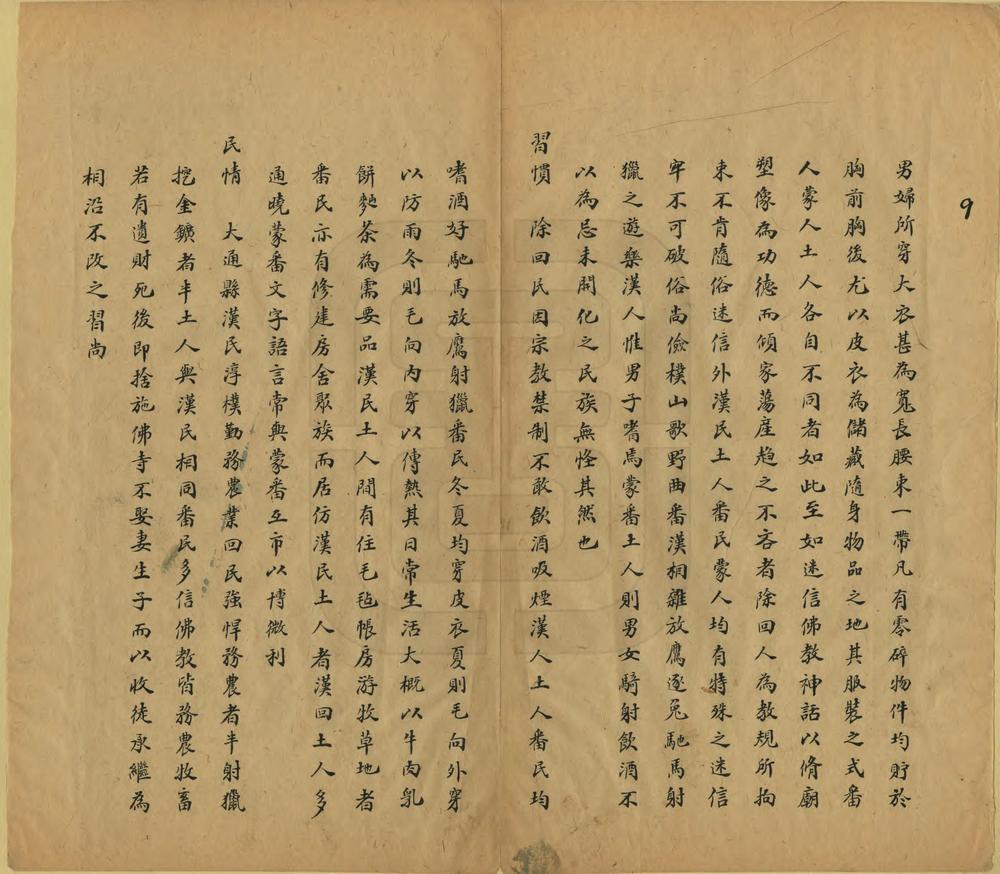 9
男婦所穿大衣甚為寬長腰束一帶凡有零碎物件均貯於
胸前胸後尤以皮衣為儲藏隨身物品之地其服裝之式番
人蒙人土人各自不同者如此至如迷信佛教神話以脩廟
塑像為功德而傾家蕩產趨之不吝者除回人為教規所拘
束不肯隨俗迷信外漢民土人番民蒙人均有特殊之迷信
牢不可破俗尚儉樸山歌野曲番漢相雜放鷹逐兔馳馬射
獵之遊樂漢人惟男子嗜馬蒙番土人則男女騎射飲酒不
以為忌未開化之民族無怪其然也
習慣　除回民因宗教禁制不敢飲酒吸煙漢人土人番民均
嗜酒好馳馬放鷹射獵番民冬夏均穿皮衣夏則毛向外穿
以防雨冬則毛向內穿以傳熱其日常生活大概以牛肉乳
餅麪茶為需要品漢民土人間有住毛毡帳房游牧草地者
番民亦有修建房舍聚族而居仿漢民土人者漢回土人多
通曉蒙番文字語言常與蒙番互市以博微利
民情　大通縣漢民淳樸勤務農業回民強悍務農者半射獵
挖金鑛者半土人與漢民相同番民多信佛教皆務農牧畜
若有遺財死後即捨施佛寺不娶妻生子而以收徒承繼為
相沿不改之習尚